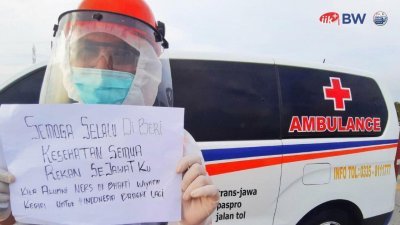 iik BW
SEMOGA SELALU DI BERI
KESEHATAN SEMUA
REKAN SEJAWATKU
KILA ALUMNI NERS IIK BHAKTI WIYATA
KEDIRI UNTUK INDONESIA BANGKIT LAGI
AMBULANCE
INFO TOL: 0335-8111777
trans-jawa
paspro
jalan tol